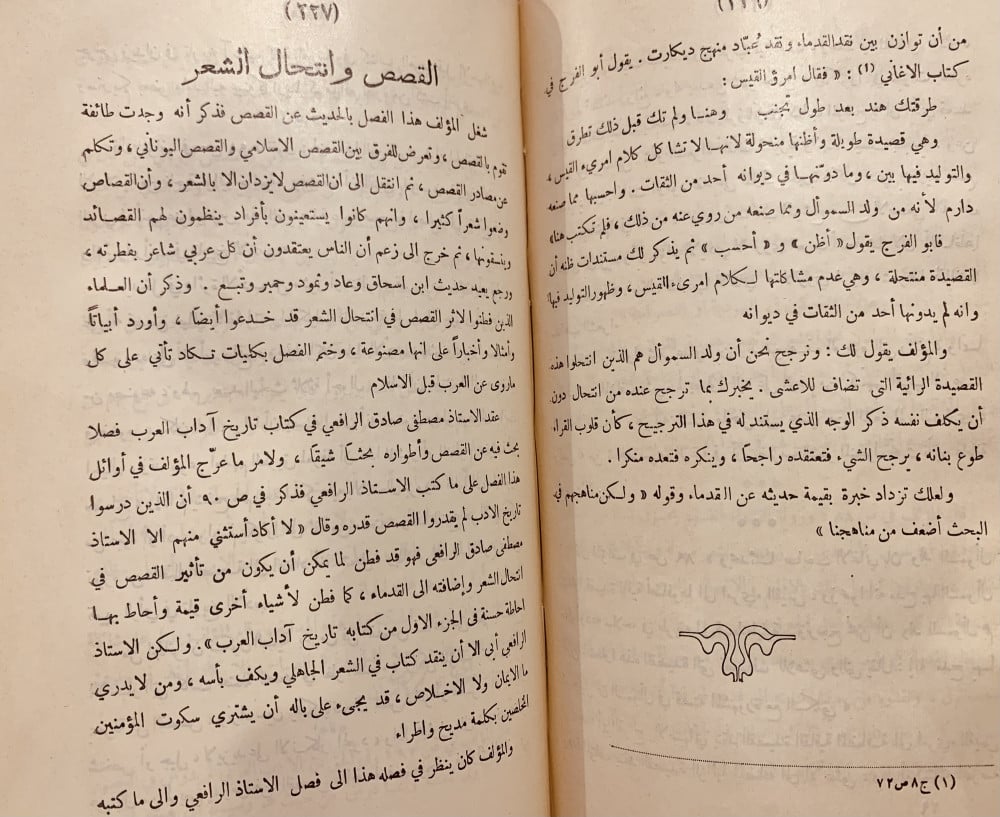 (٢٢٦)
من أن توازن بين نقد القدماء ونقد عبّاد منهج ديكارت . يقول أبو الفرج في
كتاب الاغاني (١) : « فقال امرؤ القيس :
طرقتك هند بعد طول تجنب وهنا ولم تك قبل ذلك تطرق
وهي قصيدة طويلة وأظنها منحولة لانها لا تشاكل كلام امرىء القيس ،
والتوليد فيها بين ، وما دوّنها في ديوانه أحد من الثقات . واحسبها مما صنعه
دارم لأنه من ولد السموأل ومما صنعه من روي عنه من ذلك ، فلم تكتب هنا »
فابو الفرج يقول « أظن » و « أحسب » ثم يذكر لك مستندات ظنه أن
القصيدة منتحلة ، وهي عدم مشاكلتها لكلام امرىء القيس ، وظهور التوليد فيها
وانه لم يدونها أحد من الثقات في ديوانه
والمؤلف يقول لك : ونرجح نحن أن ولد السموأل هم الذين انتحلوا هذه
القصيدة الرائية التى تضاف للاعشى . يخبرك بما ترجح عنده من انتحال دون
أن يكلف نفسه ذكر الوجه الذي يستند له في هذا الترجيح ، كأن قلوب القراء
طوع بنانه ، يرجح الشيء فتعتقده راجحاً ، وينكره فتعده منكرا .
ولعلك تزداد خبرة بقيمة حديثه عن القدماء وقوله « ولكن مناهجهم في
البحث أضعف من مناهجنا »
(١) ج ٨ ص ٧٢
(٢٢٧)
القصص وانتحال الشعر
شغل المؤلف هذا الفصل بالحديث عن القصص فذكر أنه وجدت طائفة
تقوم بالقصص ، وتعرض للفرق بين القصص الاسلامي والقصص اليوناني ، وتكلم
عن مصادر القصص ، ثم انتقل الى ان القصص لا يزدان الا بالشعر ، وأن القصاص
وضعوا شعراً كثيرا ، وانهم كانوا يستعينون بأفراد ينظمون لهم القصائد
وينسقونها ، ثم خرج الى زعم أن الناس يعتقدون أن كل عربي شاعر بفطرته ،
ورجع يعيد حديث ابن اسحاق وعاد وثمود وحمير وتبع . وذكر أن العلماء
الذين فطنوا لاثر القصص في انتحال الشعر قد خدعوا أيضاً ، وأورد أبياتاً
وأمثالا وأخباراً على انها مصنوعة ، وختم الفصل بكليات تكاد تأتي على كل
ماروى عن العرب قبل الاسلام
عقد الاستاذ مصطفى صادق الرافعي في كتاب تاريخ آداب العرب فصلا
بحث فيه عن القصص وأطواره بحثاً شيقاً ، ولامر ما عرّج المؤلف في أوائل
هذا الفصل على ما كتب الاستاذ الرافعي فذكر في ص ٩٠ أن الذين درسوا
تاريخ الادب لم يقدروا القصص قدره وقال « لا أكاد أستثني منهم الا الاستاذ
مصطفى صادق الرافعى فهو قد فطن لما يمكن أن يكون من تأثير القصص في
انتحال الشعر وإضافته الى القدماء ، كما فطن لأشياء أخرى قيمة وأحاط بها
احاطة حسنة في الجزء الاول من كتابه تاريخ آداب العرب » . ولكن الاستاذ
الرافعي أبى الا أن ينقد كتاب في الشعر الجاهلي ويكف بأسه ، ومن لا يدري
ما الايمان ولا الاخلاص ، قد يجىء على باله أن يشتري سكوت المؤمنين
المخلصين بكلمة مديح واطراء
والمؤلف كان ينظر في فصله هذا الى فصل الاستاذ الرافعي والى ما كتبه